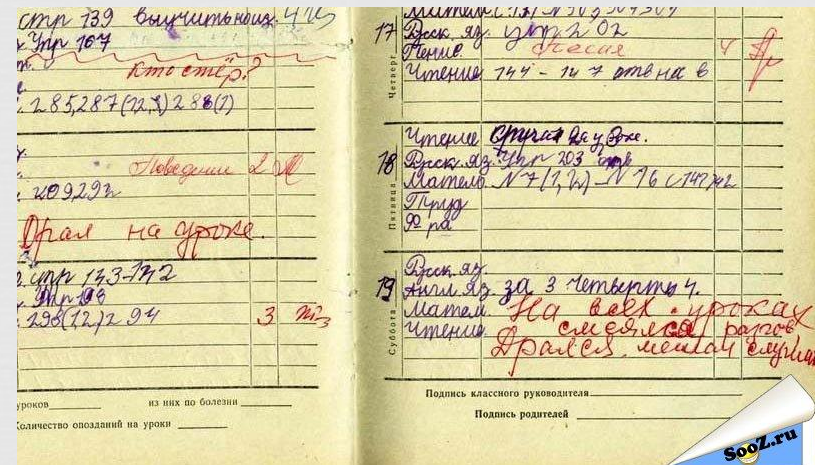 стр 139 выучить наиз.
Упр 167
Кто стёр?
285,287(12,3)288(1)
Поведение 2
209,292
Орал на уроке.
упр 143-142
Упр 198
298(12)294
3
уроков
из них по болезни
Количество опозданий на уроки
Матем
17 Русск. яз. упр 202
Четверг
Пение. Песня 4
Чтение 144 - 147 отв на в
Чтение
18 Русск. яз. Упр 203
Пятница
Матем. N 7(1,2) - N 16 с 147
Труд
Ф ра
Русск. яз.
19 Англ. яз. за 3 четверть 4.
Суббота
Матем. На всех уроках
Чтение. смеялся, разгов
Дрался, мешал слушать
Подпись классного руководителя
Подпись родителей
SooZ.ru